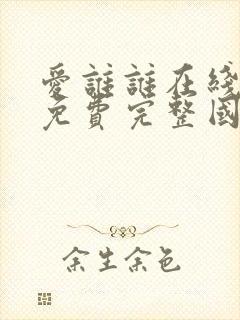 愛誰誰在綫
免費完整國
余生余色